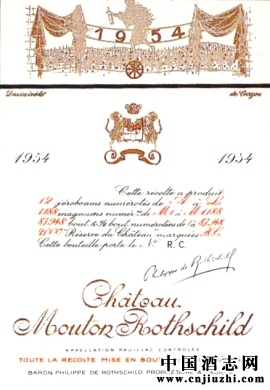 1954
Dessin inédit de Carzou
1954 1954
Cette récolte a produit
12 jéroboams numérotés de A à L
1188 magnums numér. de M1 à M 1188
87.948 bout. & ½ bout. numérotées de 1 à 87.948
2000 Réserve du Château marquées R.C.
Cette bouteille porte le N° R.C.
Philippe de Rothschild
Château
Mouton Rothschild
APPELLATION PAUILLAC CONTRÔLÉE
TOUTE LA RÉCOLTE MISE EN BOUT
BARON PHILIPPE DE ROTHSCHILD PROPRIÉTAIRE A PAUIL
中国酒志网
www.cnjuzhi.com